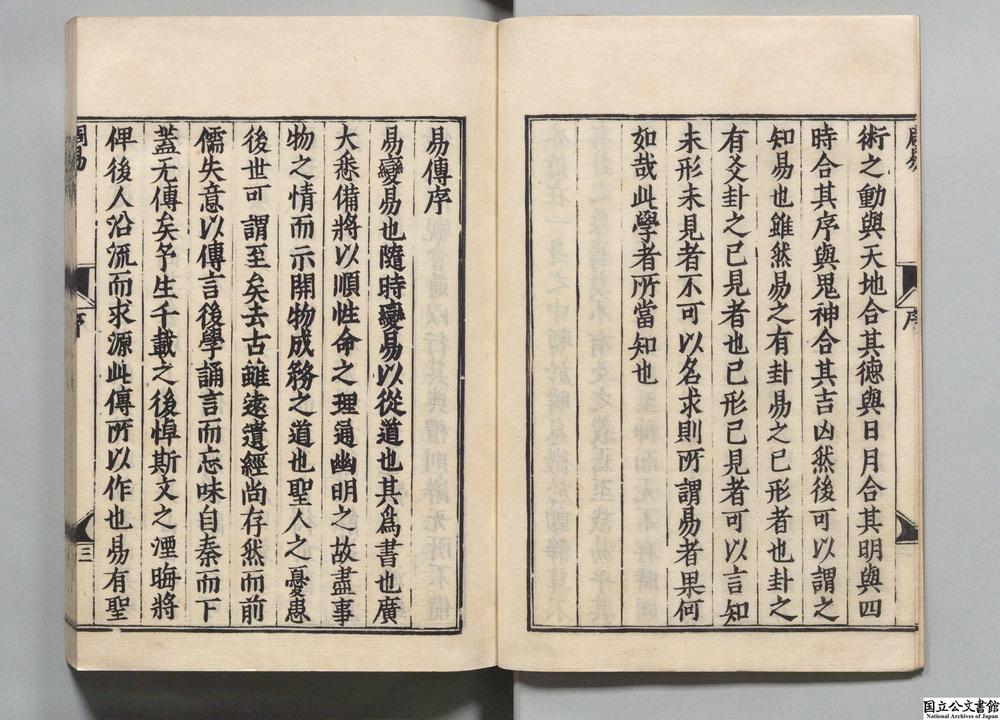 周易
序
術之動與天地合其德與日月合其明與四
時合其序與鬼神合其吉凶然後可以謂之
知易也雖然易之有卦易之已形者也卦之
有爻卦之已見者也已形已見者可以言知
未形未見者不可以名求則所謂易者果何
如哉此學者所當知也
易傳序
易變易也隨時變易以從道也其為書也廣
大悉備將以順性命之理通幽明之故盡事
物之情而示開物成務之道也聖人之憂患
後世可謂至矣去古雖遠遺經尚存然而前
儒失意以傳言後學誦言而忘味自秦而下
蓋无傳矣予生千載之後悼斯文之湮晦將
俾後人沿流而求源此傳所以作也易有聖
周易
序
三
国立公文書館
National Archives of Japan